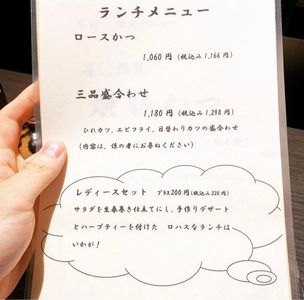 ランチメニュー
ロースかつ
1,060円 (税込み1,166円)
三品盛合わせ
1,180円 (税込み1,298円)
ひれカツ、エビフライ、日替わりカツの盛合わせ
(内容は、係の者にお尋ねください)
レディースセット プラス200円(税込み220円)
サラダを生春巻き仕立てにし、手作りデザート
とハーブティーを付けた ロハスなランチは
いかが!